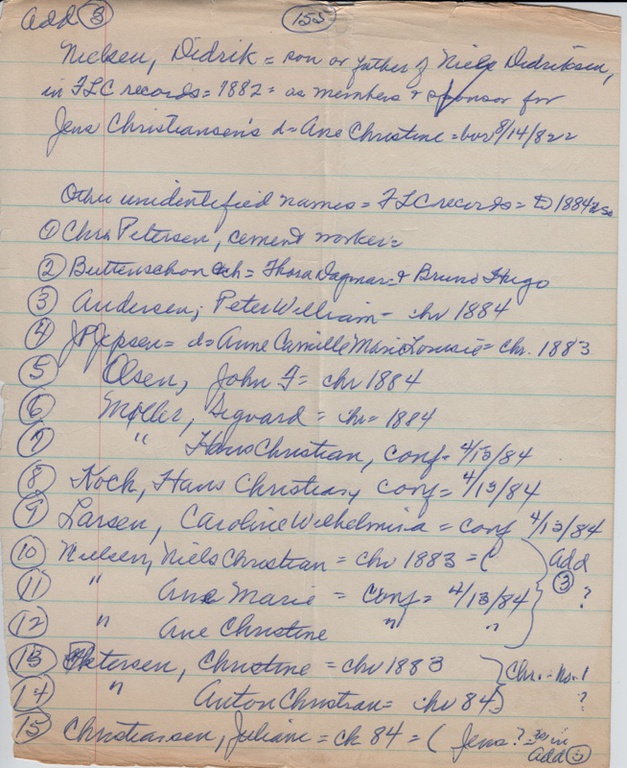 Add ③ 155
Nielsen, Didrik = son or father of Niels Didriksen,
in FLC records = 1882 = as members + sponsor for
Jens Christiansen's d = Ane Christine = bor 8/14/82
Other unidentified names = FLC records = to 1884
① Chr. Petersen, cement worker =
② Buttenschon ch = Thora Dagmar + Bruno Hugo
③ Andersen, Peter William - chr 1884
④ JP Jepsen = d = Anne Camille Marie Lousie = chr. 1883
⑤ Olsen, John F = chr 1884
⑥ Møller, Sigvard = chr = 1884
⑦ " Hans Christian, conf = 4/13/84
⑧ Koch, Hans Christian, conf = 4/13/84
⑨ Larsen, Caroline Wilhelmina = conf 4/13/84
⑩ Nielsen, Niels Christian = chr 1883 = ( Add
⑪ " Ane Marie = conf = 4/13/84 ③ ?
⑫ " Ane Christine " "
⑬ Petersen, Christine = chr 1883 Chr. - No. 1
⑭ " Anton Christian = chr 84 ?
⑮ Christiansen, Juliane = ch 84 = ( Jens? = in
Add ③